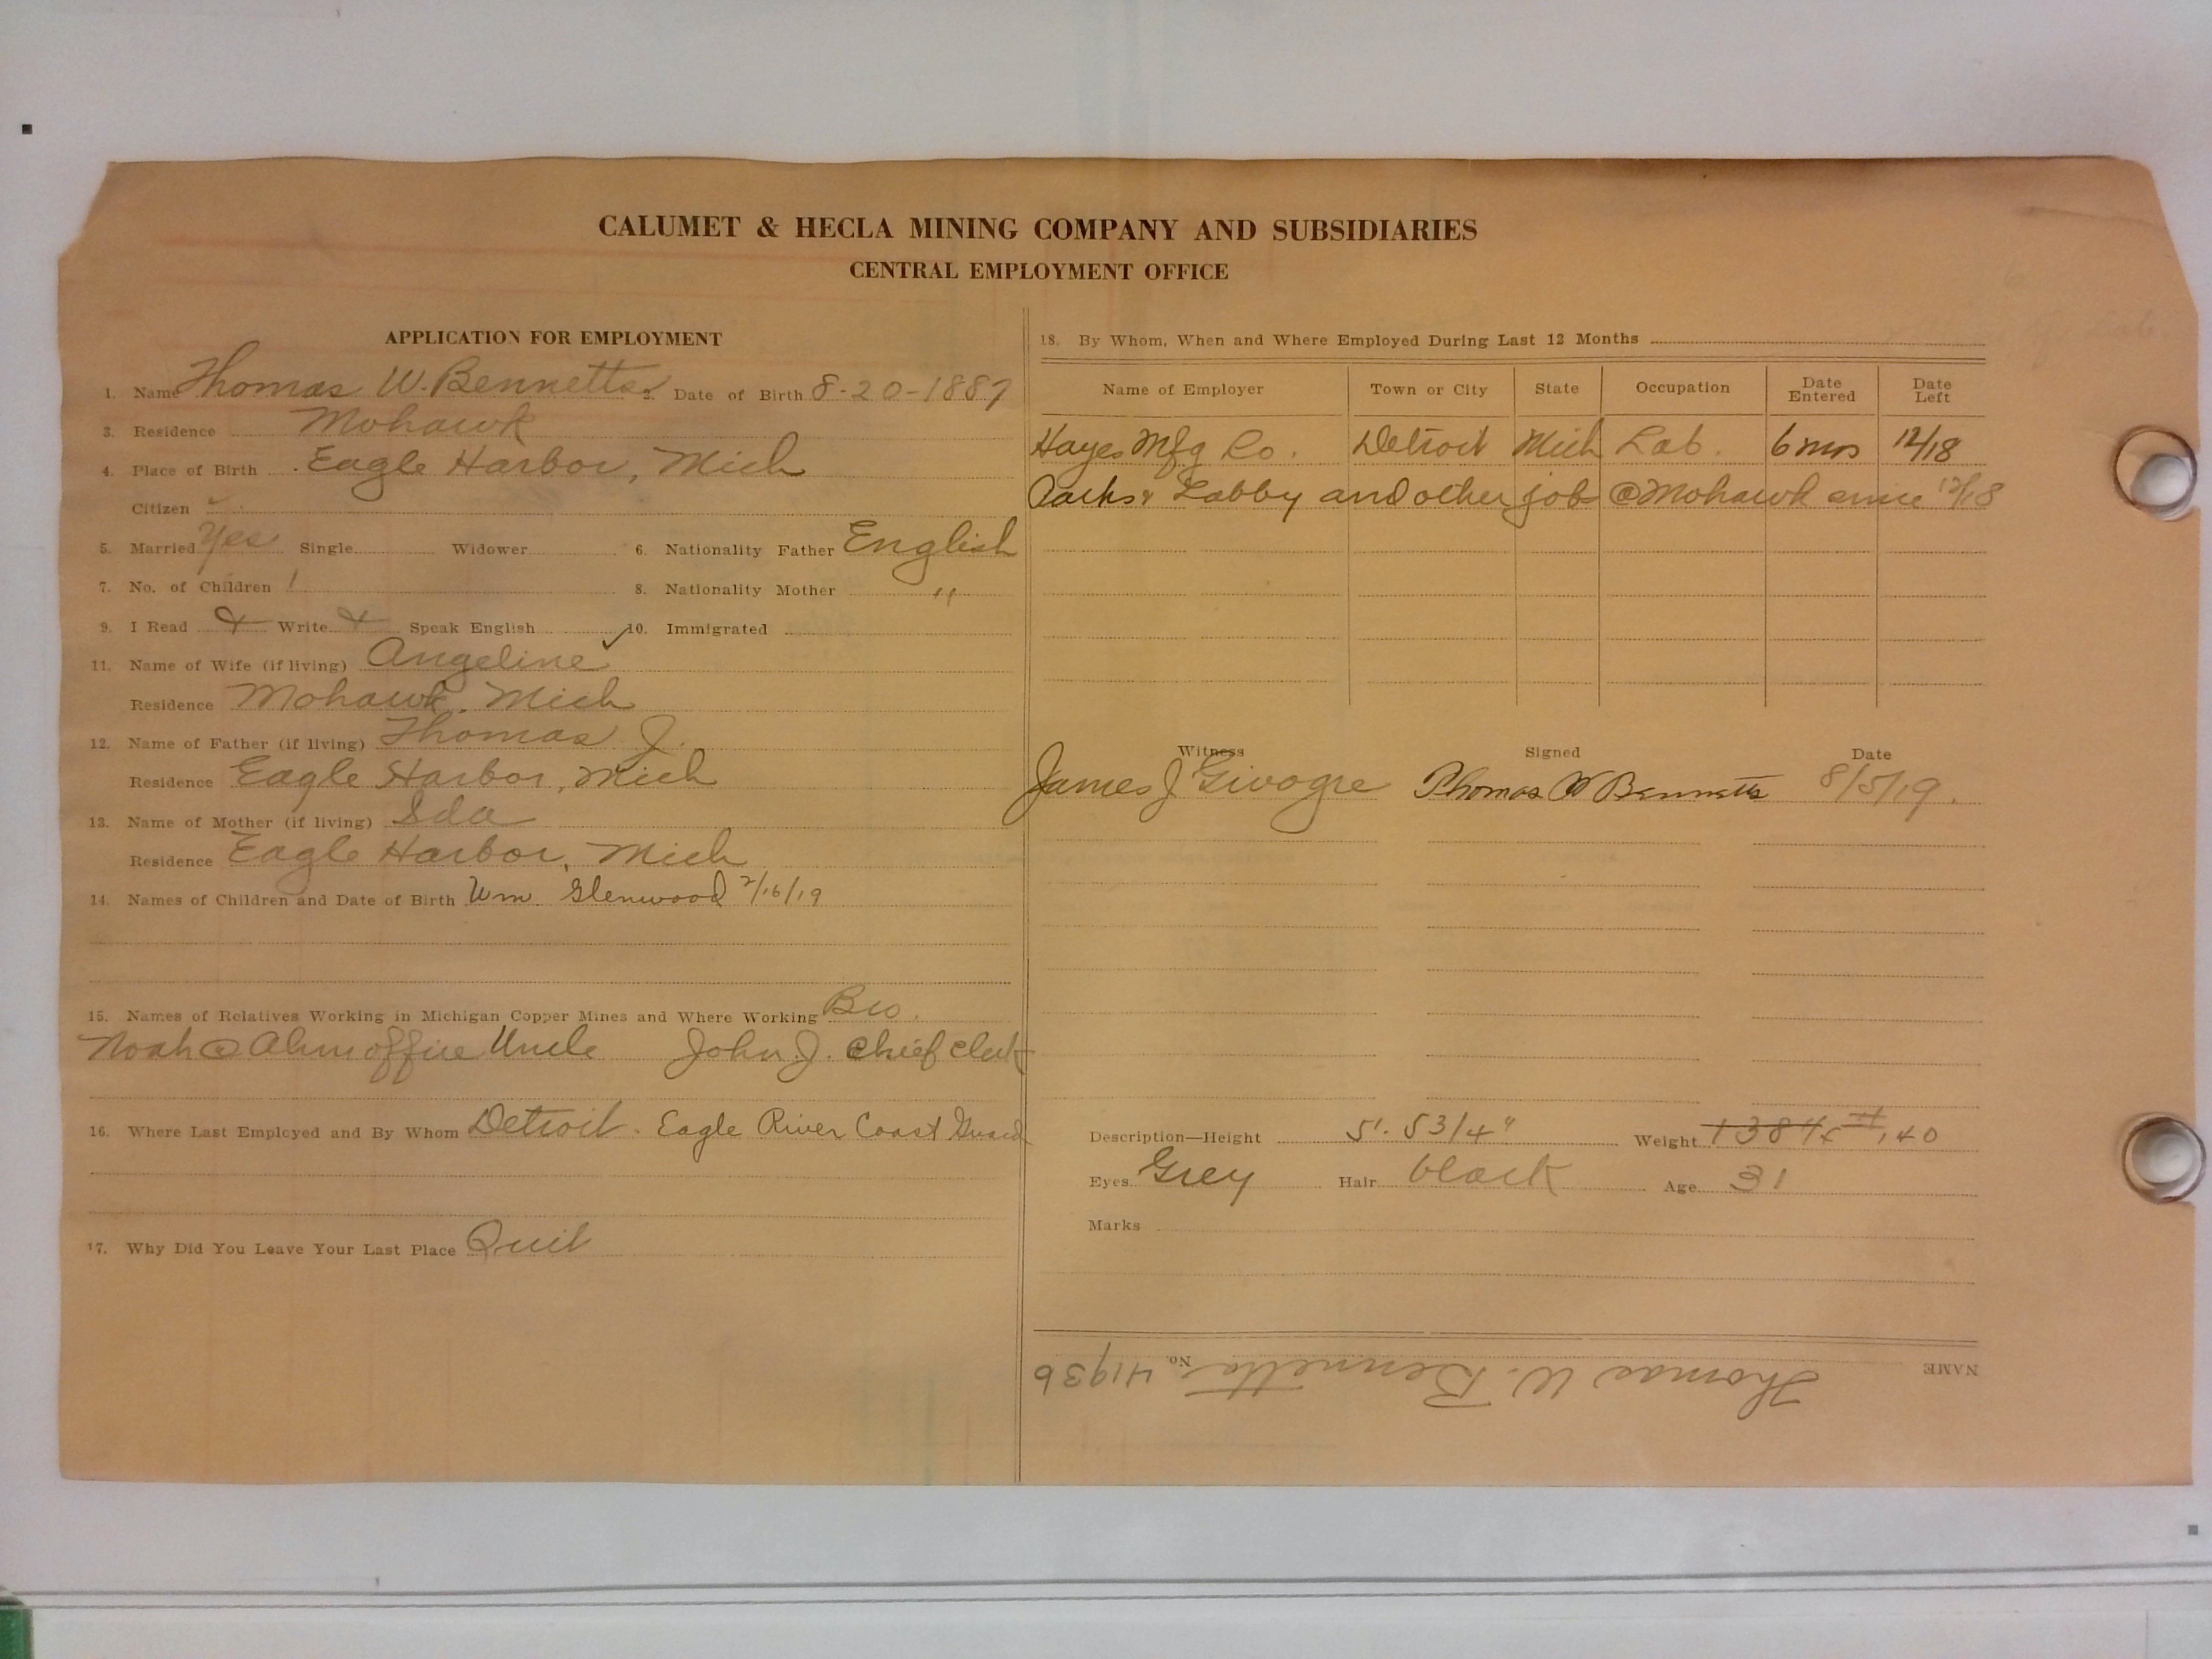 CALUMET & HECLA MINING COMPANY AND SUBSIDIARIES
CENTRAL EMPLOYMENT OFFICE
APPLICATION FOR EMPLOYMENT
1. Name Thomas W. Bennetts 2. Date of Birth 8-20-1887
3. Residence Mohawk
4. Place of Birth Eagle Harbor, Mich
Citizen
5. Married Yes Single Widower 6. Nationality Father English
7. No. of Children 1 8. Nationality Mother "
9. I Read Write Speak English ✓ 10. Immigrated
11. Name of Wife (if living) Angeline
Residence Mohawk. Mich
12. Name of Father (if living) Thomas J.
Residence Eagle Harbor, Mich
13. Name of Mother (if living) Ida
Residence Eagle Harbor, Mich
14. Names of Children and Date of Birth Wm Glenwood 2/16/19
15. Names of Relatives Working in Michigan Copper Mines and Where Working Bro.
Noah @ office Uncle John J. Chief Clerk
16. Where Last Employed and By Whom Detroit. Eagle River Coast Guard
17. Why Did You Leave Your Last Place Quit
18. By Whom, When and Where Employed During Last 12 Months
Name of Employer Town or City State Occupation Date Entered Date Left
Hayes Mfg Co. Detroit Mich Lab. 6 mos 12/18
& Labby and other jobs @ Mohawk since 12/18
Witness Signed Date
James J Givogre Thomas W Bennetts 8/5/19.
Description—Height 5'. 5 3/4" Weight 140
Eyes Grey Hair black Age 31
Marks
NAME Thomas W. Bennetts No. 41936